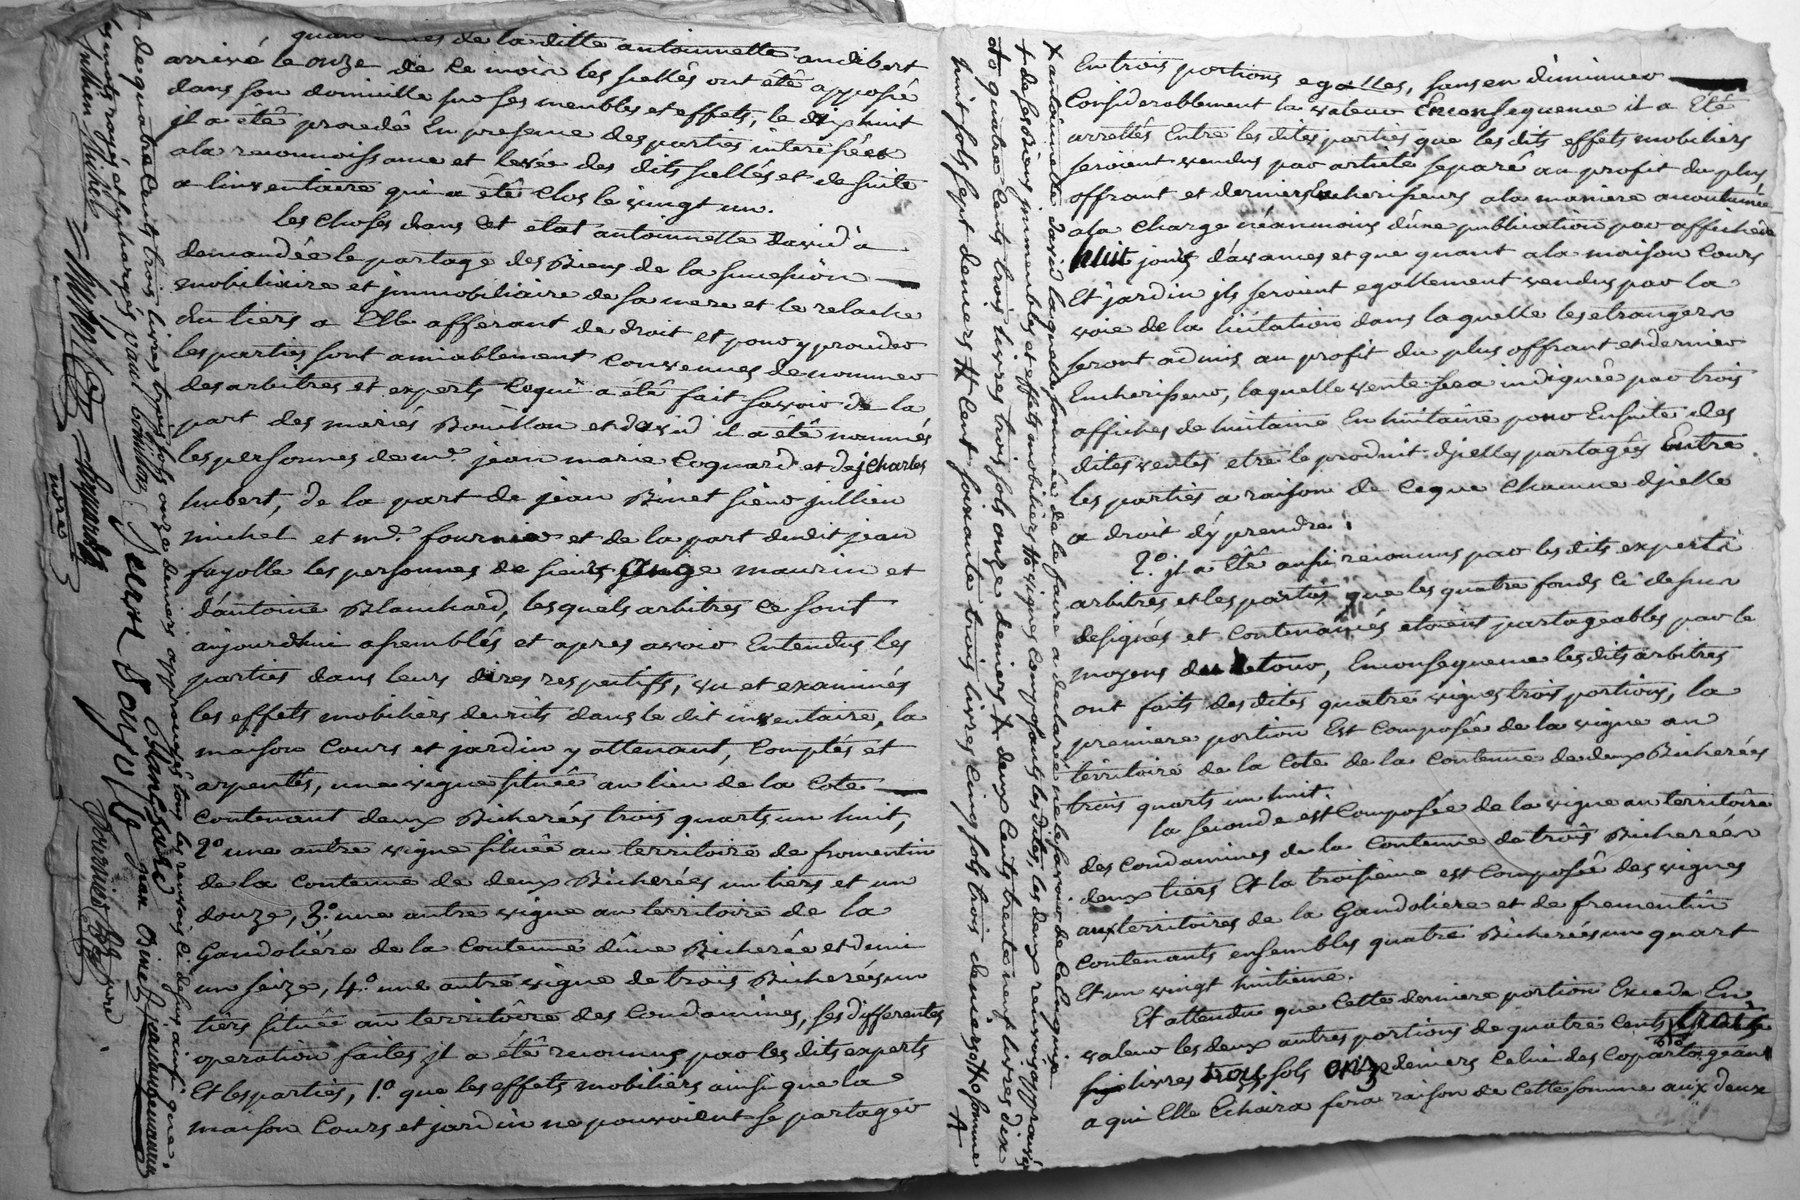 de la ditte antoinnette audibert
arrivé le onze de ce mois les sçellés ont été apposé
dans son domicille sur ses meubles et effets, le dix huit
il a été procedé En presence des parties interessées
a la reconnoissance et levée des dits sçellés et de suite
a linventaire qui a été clos le vingt un.
les choses dans cet état antoinnette david a
demandée le partage des Biens de la succession
mobiliaire et jmmobiliaire de sa mere et le relache
du tiers a Elle afferant de droit et pour y proceder
les parties sont amiablement convenues de nommer
des arbitres et experts Ce qui a été fait savoir de la
part des mariés Bouillon et david il a été nommés
les personnes de me. jean marie Coquard et de j Charles
hubert, de la part de jean Binet sieur jullien
michel et me. fournier et de la part dudit jean
fayolle les personnes de sieurs Ange maurin et
d'antoine Blanchard, lesquels arbitres ce sont
aujourdhui assemblés et apres avoir Entendus les
parties dans leurs dires respectifs, vu et examinés
les effets mobiliers decrits dans le dit inventaire, la
maison Cours et jardin y attenant, Comptés et
arpentés, une vigne située au lieu de la Cote
Contenant deux Bicherées trois quarts un huit,
2o une autre vigne située au territoire de fromentin
de la Contenue de deux Bicherées un tiers et un
douze, 3o. une autre vigne au territoire de la
Gandoliére de la Contenue d'une Bicherée et demi
un seize, 4o. une autre vigne de trois Bicherées un
tiers située au territoire des Condamines, ses differentes
operation faites jl a été reconnus par les dits experts
Et les parties, 1o que les effets mobiliers ainsi que la
maison Cours et jardin ne pouvoient se partager
de quatre Cents trois livres trois sols onze deniers approuvés tous les renvois ci dessus ainsi que
les mots rayés et surchargés vaut bouillon
jullien michel
Coquard
Jean fayolle
Blanchard
jean Binet
jean maurin
fournier
En trois portions egalles, sans en diminuer
Considerablement la valeur Enconsequence il a Été
arrettés Entre les dites parties que les dits effets mobiliers
seroient vendus par article separé au profit du plus
offrant et derniers Encherisseurs a la maniere acoutumée
a la Charge néanmoins d'une publication par affiche de
huit jours d'avances et que quant a la maison Cours
Et jardin jls seroient egallement vendus par la
voie de la licitation dans laquelle les etrangers
seront admis au profit du plus offrant et dernier
Encherisseur, laquelle vente sera indiquée par trois
affiches de huitaine En huitaine pour Ensuite des
dites ventes etre le produit djcelles partagés Entre
les parties a raison de Ceque Chacune djcelle
a droit d'y prendre.
2o. jl a été aussi reconnus par les dits experts
arbitres et les parties que les quatre fonds Ci dessus
designés et Contenancés etoient partageables par le
moyens du Retour, Enconsequence les dits arbitres
ont faits des dites quatre vignes trois portions, la
premiere portion Est Composée de la vigne au
territoire de la Cote de la Contenue de deux Bicherées
trois quarts un huit.
la seconde est Composée de la vigne au territoire
des Condamines de la Contenue de trois Bicherées
deux tiers Et la troisieme est Composée des vignes
aux territoires de la Gandoliere et de fromentin
Contenants ensembles quatre Bicherées un quart
Et un vingt huitieme.
Et attendu que Cette derniere portion Excede En
valeur les deux autres portions de quatre Cents trois
livres trois sols onze deniers Celui des Copartageant
a qui Elle Echoira fera raison de Cette somme aux deux
+ antoinnette david laquelle sommée de le faire a declarée ne le savoir de Ce enquise
+ de ses Biens jmmeubles et effets mobiliers # vignes Composants les dites, les deux renvois approuvés
quatre Cents trois livres trois sols onze deniers # deux Cents trente neuf livres dix
huit sols sept deniers # Cent soixante trois livres Cinq sols trois deniers # somme